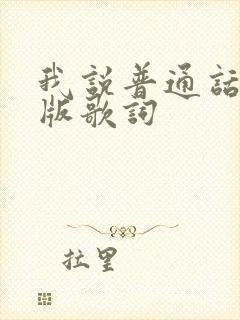 我說普通話
版歌詞
拉里